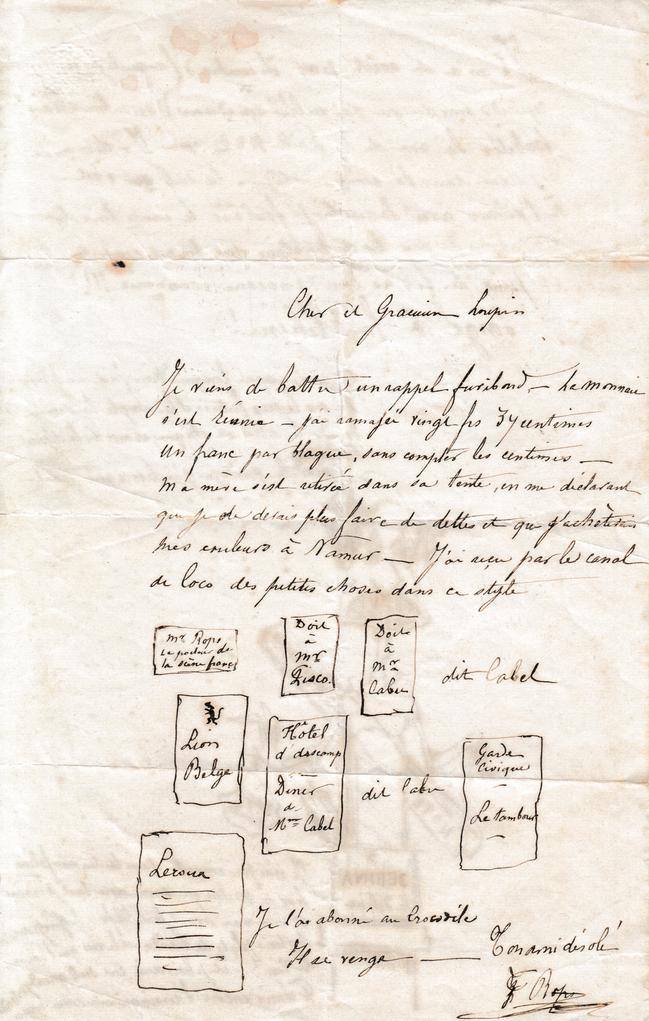 Cher et Gracieux Loupin
Je viens de battre un rappel furibond — La monnaie
s'est réunie — j'ai ramassé vingt frs 34 centimes
un franc par blague, sans compter les centimes —
ma mère s'est retirée dans sa tente, en me déclarant
que je ne devais plus faire de dettes et que j'achèterais
mes couleurs à Namur — J'ai reçu par le canal
de loco des petites choses dans ce style
Mr Rops
la scène franç
Doit
à
Mr
Zisco.
Doit
à
Mr
Cabu
dit Cabel
Lion
Belge
Hôtel
d'
Diner
d
Mme Cabel
dit Cabu
Garde
Civique
—
Le tambour
—
Leroux
Je l'ai abonné au Crocodile
Il se venge —— Ton ami désolé
F Rops